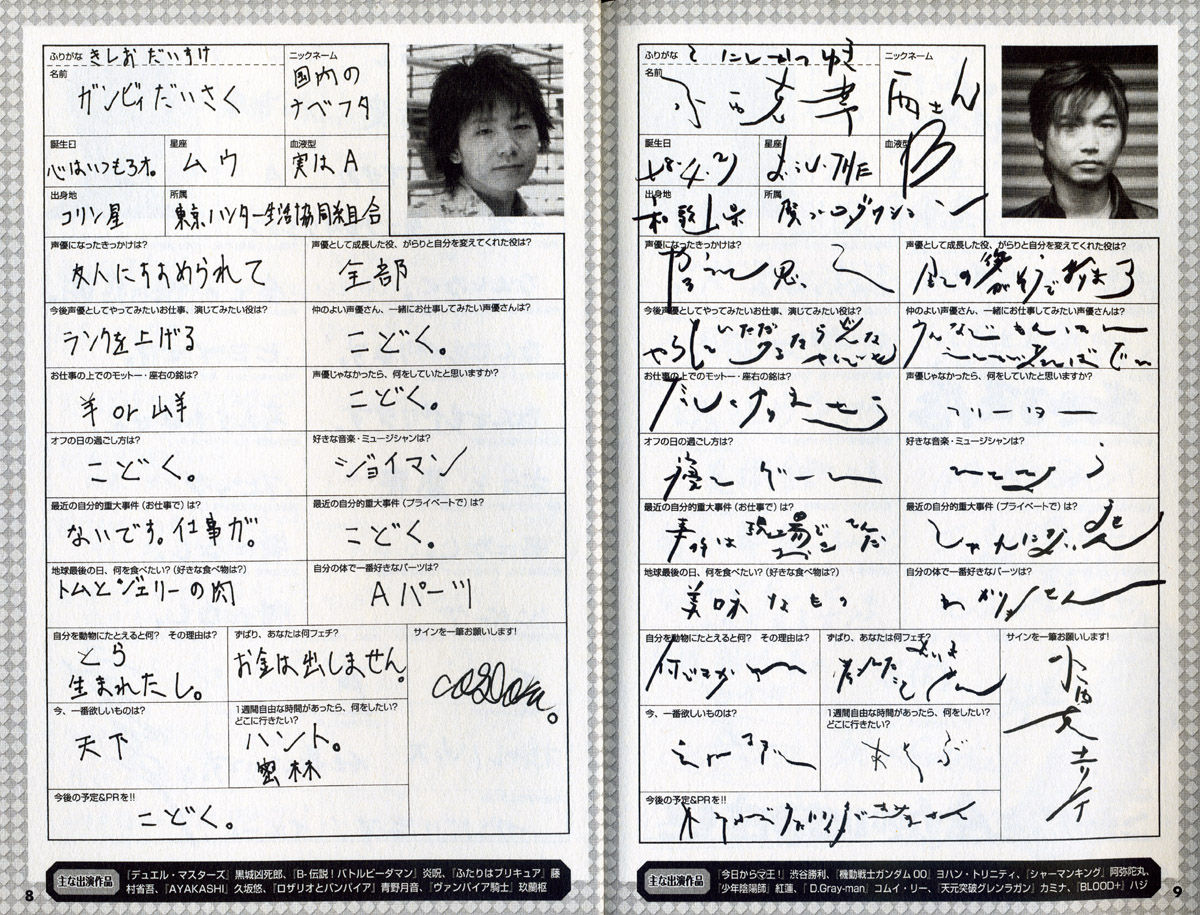 ふりがな きしお だいすけ
名前
ガンビィだいさく
ニックネーム
国内の
ナベフタ
誕生日
心はいつも3才。
星座
ムウ
血液型
実はA
出身地
コリン星
所属
東京ハンター生活協同組合
声優になったきっかけは?
友人にすすめられて
声優として成長した役、がらりと自分を変えてくれた役は?
全部
今後声優としてやってみたいお仕事、演じてみたい役は?
ランクを上げる
仲のよい声優さん、一緒にお仕事してみたい声優さんは?
こどく。
お仕事の上でのモットー・座右の銘は?
羊 or 山羊
声優じゃなかったら、何をしていたと思いますか?
こどく。
オフの日の過ごし方は?
こどく。
好きな音楽・ミュージシャンは?
ジョイマン
最近の自分的重大事件(お仕事で)は?
ないです。仕事が。
最近の自分的重大事件(プライベートで)は?
こどく。
地球最後の日、何を食べたい?(好きな食べ物は?)
トムとジェリーの肉
自分の体で一番好きなパーツは?
Aパーツ
自分を動物にたとえると何? その理由は?
とら
生まれたし。
ずばり、あなたは何フェチ?
お金は出しません。
サインを一筆お願いします!
今、一番欲しいものは?
天下
1週間自由な時間があったら、何をしたい?
どこに行きたい?
ハント。
密林
今後の予定&PRを!!
こどく。
主な出演作品
『デュエル・マスターズ』黒城凶死郎、『B-伝説!バトルビーダマン』炎呪、『ふたりはプリキュア』藤
村省吾、『AYAKASHI』久坂悠、『ロザリオとバンパイア』青野月音、『ヴァンパイア騎士』玖蘭枢
8
ふりがな こにしかつゆき
名前
小西克幸
ニックネーム
西さん
誕生日
48.4.21
星座
おうし座
血液型
B
出身地
和歌山県
所属
賢プロダクション
声優になったきっかけは?
やろうと思って
声優として成長した役、がらりと自分を変えてくれた役は?
全ての役がそうであります
今後声優としてやってみたいお仕事、演じてみたい役は?
やらしていただけるなら何でも
仲のよい声優さん、一緒にお仕事してみたい声優さんは?
お仕事の上でのモットー・座右の銘は?
声優じゃなかったら、何をしていたと思いますか?
フリーター
オフの日の過ごし方は?
寝る ゲーム
好きな音楽・ミュージシャンは?
最近の自分的重大事件(お仕事で)は?
事件は現場で
最近の自分的重大事件(プライベートで)は?
地球最後の日、何を食べたい?(好きな食べ物は?)
美味なもの
自分の体で一番好きなパーツは?
わかりません
自分を動物にたとえると何? その理由は?
何ですかね
ずばり、あなたは何フェチ?
考えたことありません
サインを一筆お願いします!
小西克幸
今、一番欲しいものは?
1週間自由な時間があったら、何をしたい?
どこに行きたい?
あそぶ
今後の予定&PRを!!
主な出演作品
『今日からマ王!』渋谷勝利、『機動戦士ガンダム00』ヨハン・トリニティ、『シャーマンキング』阿弥陀丸、
『少年陰陽師』紅蓮、『D.Gray-man』コムイ・リー、『天元突破グレンラガン』カミナ、『BLOOD+』ハジ
9